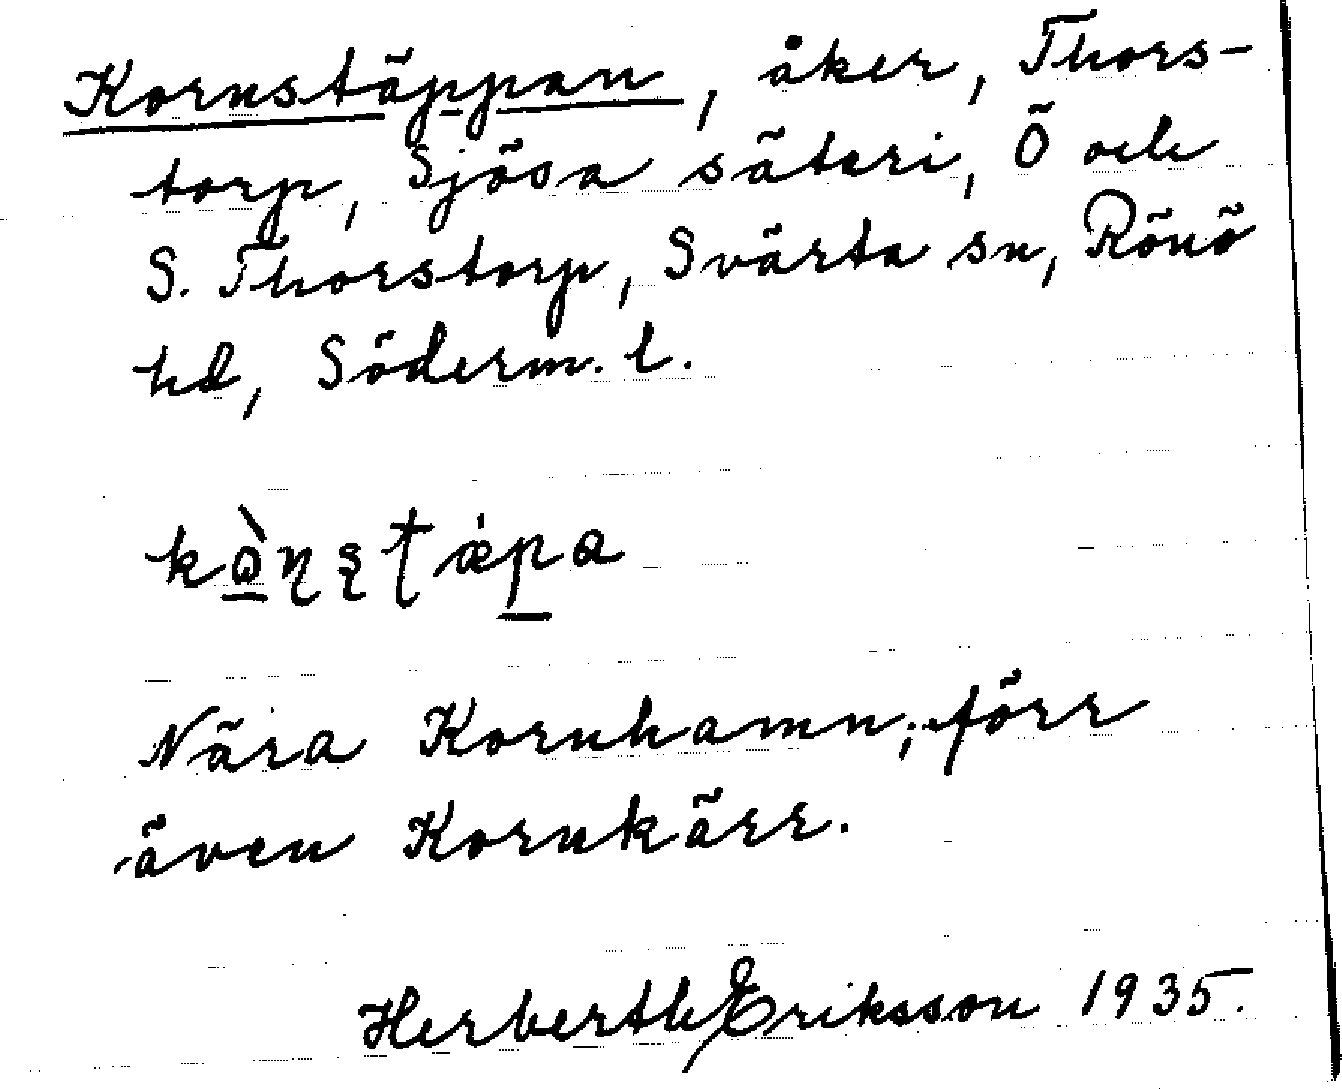 Kornstäppan, åker, Thors-
torp, Sjösa säteri, Ö och
S. Thorstorp, Svärta sn, Rönö
hd, Söderm. l.
kò̠ɳʂʈæ̍p̠a
Nära Kornhamn; förr
även Kornkärr.
Herberth Eriksson 1935.